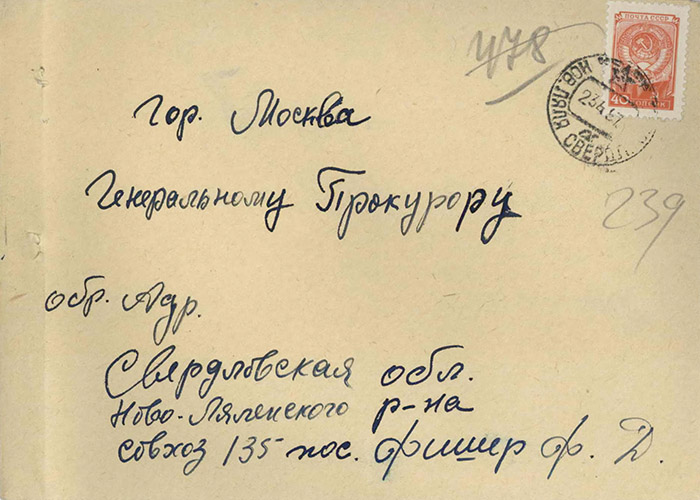 478
ПОЧТА СССР
40 КОПЕЕК
23.4.57
гор. Москва
Генеральному Прокурору
239
обр. Адр.
Свердловская обл.
Ново-Ляленского р-на
совхоз 135 пос. Фишер Ф. Д.